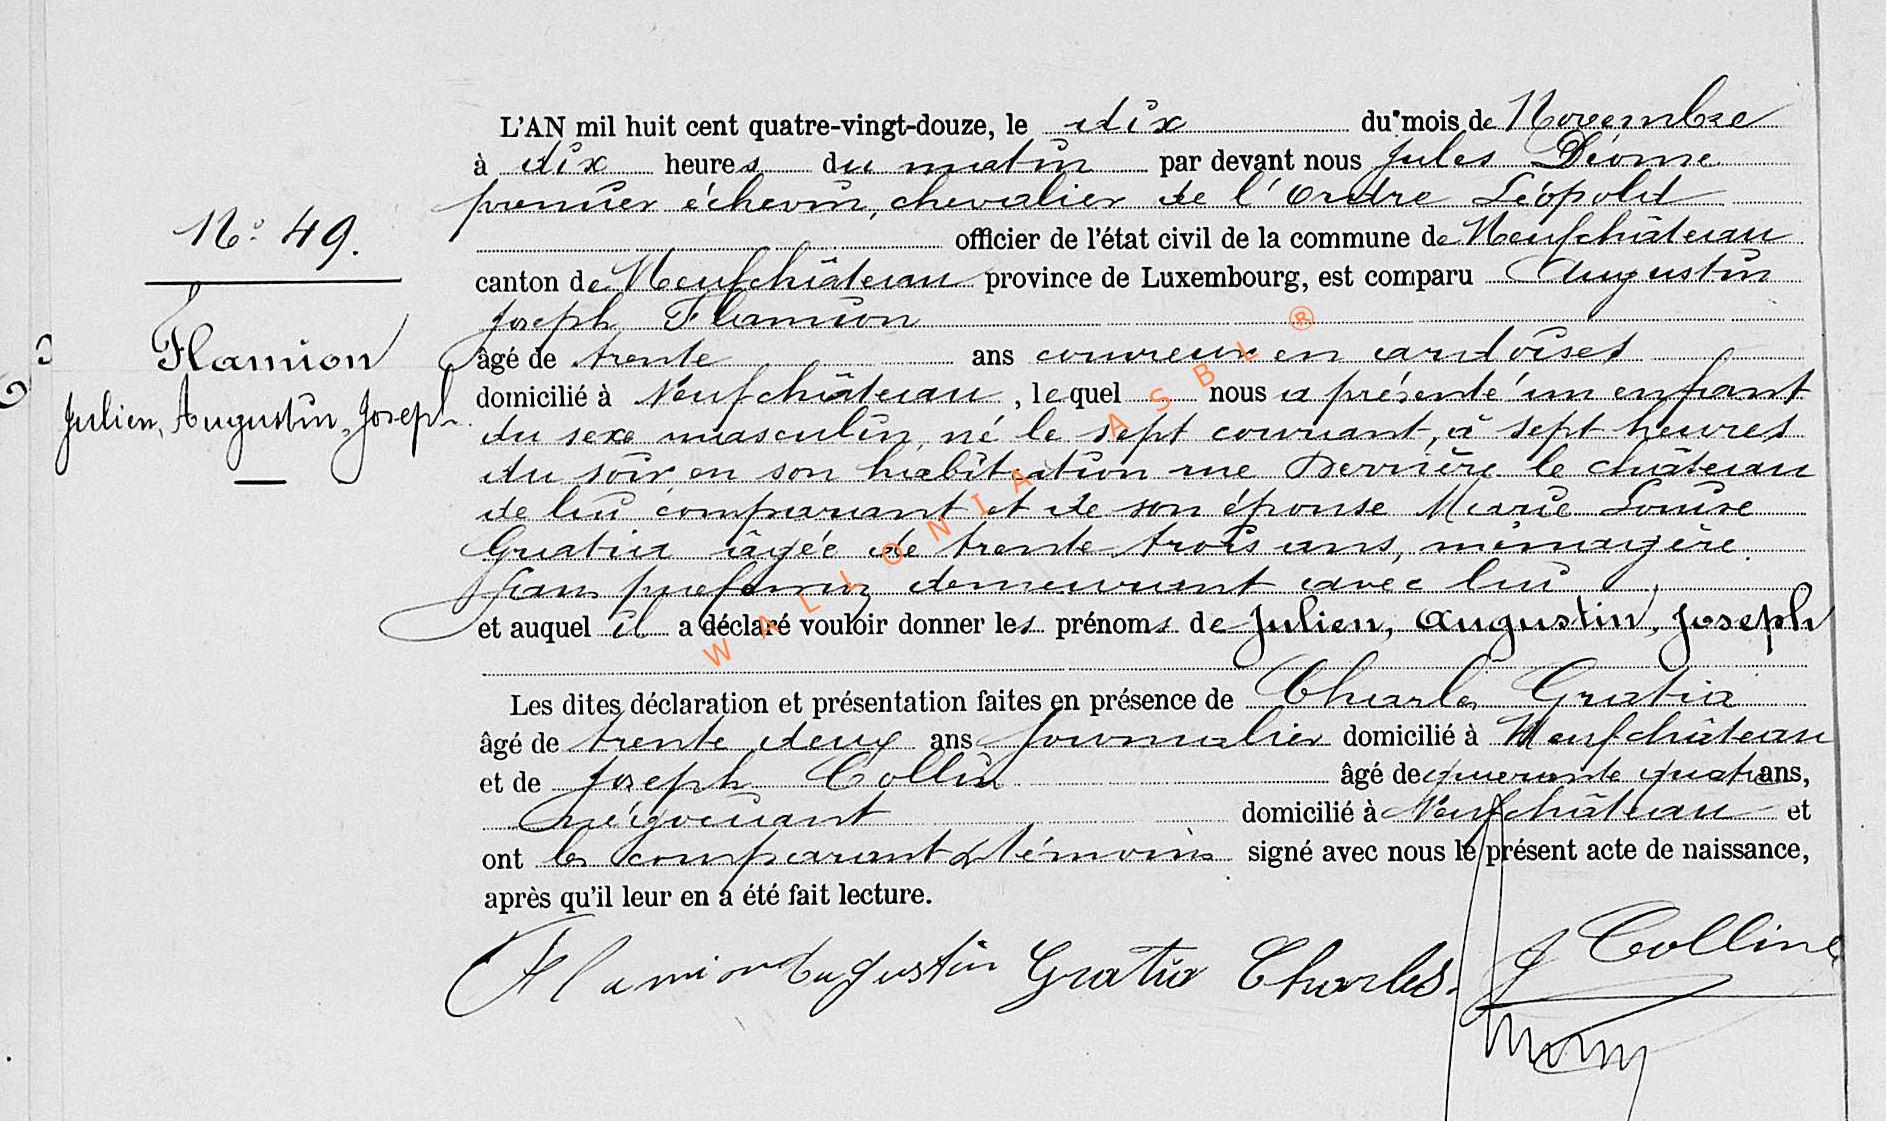 L'AN mil huit cent quatre-vingt-douze, le dix du mois de Novembre
à dix heures du matin par devant nous Jules Déome
premier échevin, chevalier de l'Ordre Léopold
officier de l'état civil de la commune de Neufchâteau
N° 49.
canton de Neufchâteau province de Luxembourg, est comparu Augustin
Joseph Flamion
Flamion
Julien, Augustin, Joseph.
âgé de trente ans couvreur en ardoises
domicilié à Neufchâteau, lequel nous a présenté un enfant
du sexe masculin, né le sept courant, à sept heures
du soir en son habitation rue Derrière le château
de lui comparant et de son épouse Marie Louise
Gratia âgée de trente trois ans, ménagère
demeurant avec lui
et auquel il a déclaré vouloir donner les prénoms de Julien, Augustin, Joseph
Les dites déclaration et présentation faites en présence de Charles Gratia
âgé de trente deux ans journalier domicilié à Neufchâteau
et de Joseph Collin âgé de quarante quatre ans,
négociant domicilié à Neufchâteau et
ont les comparant & témoins signé avec nous le présent acte de naissance,
après qu'il leur en a été fait lecture.
Flamion Augustin Gratia Charles. J Collin
WALLONIA ASBL ®